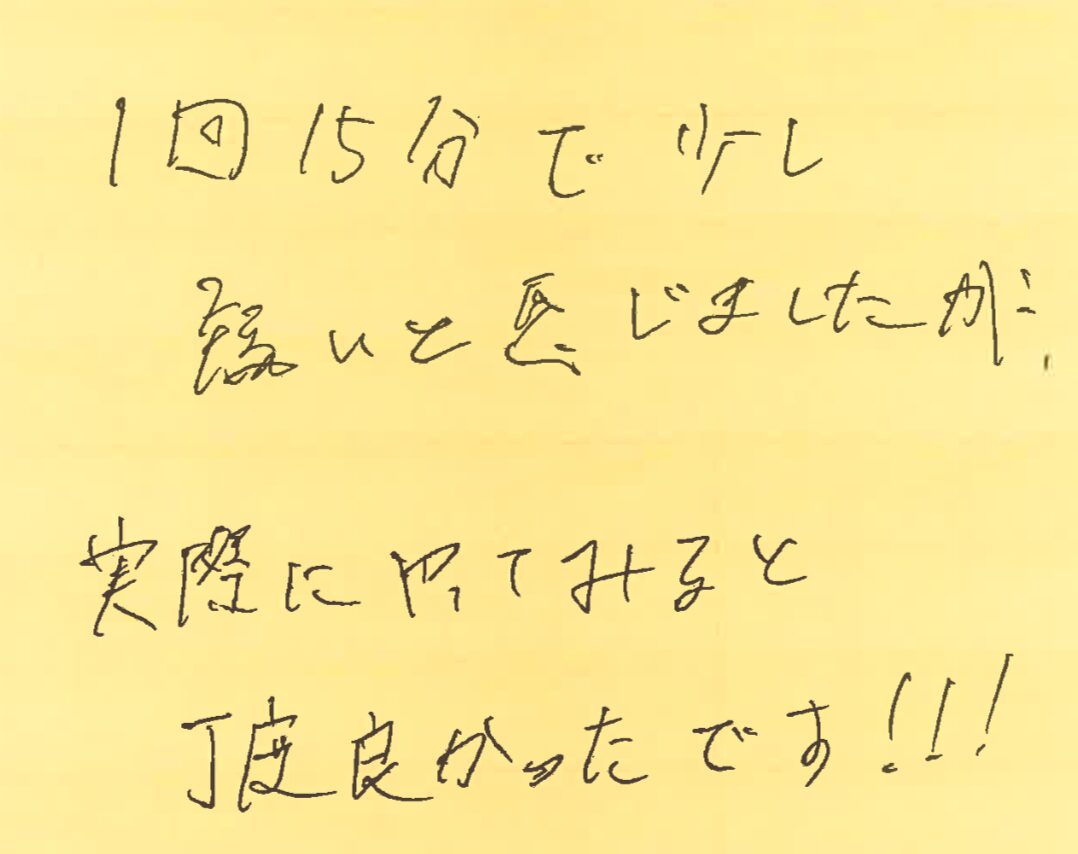 1回15分で少し
と感じましたが、
実際にやってみると
丁度良かったです!!!